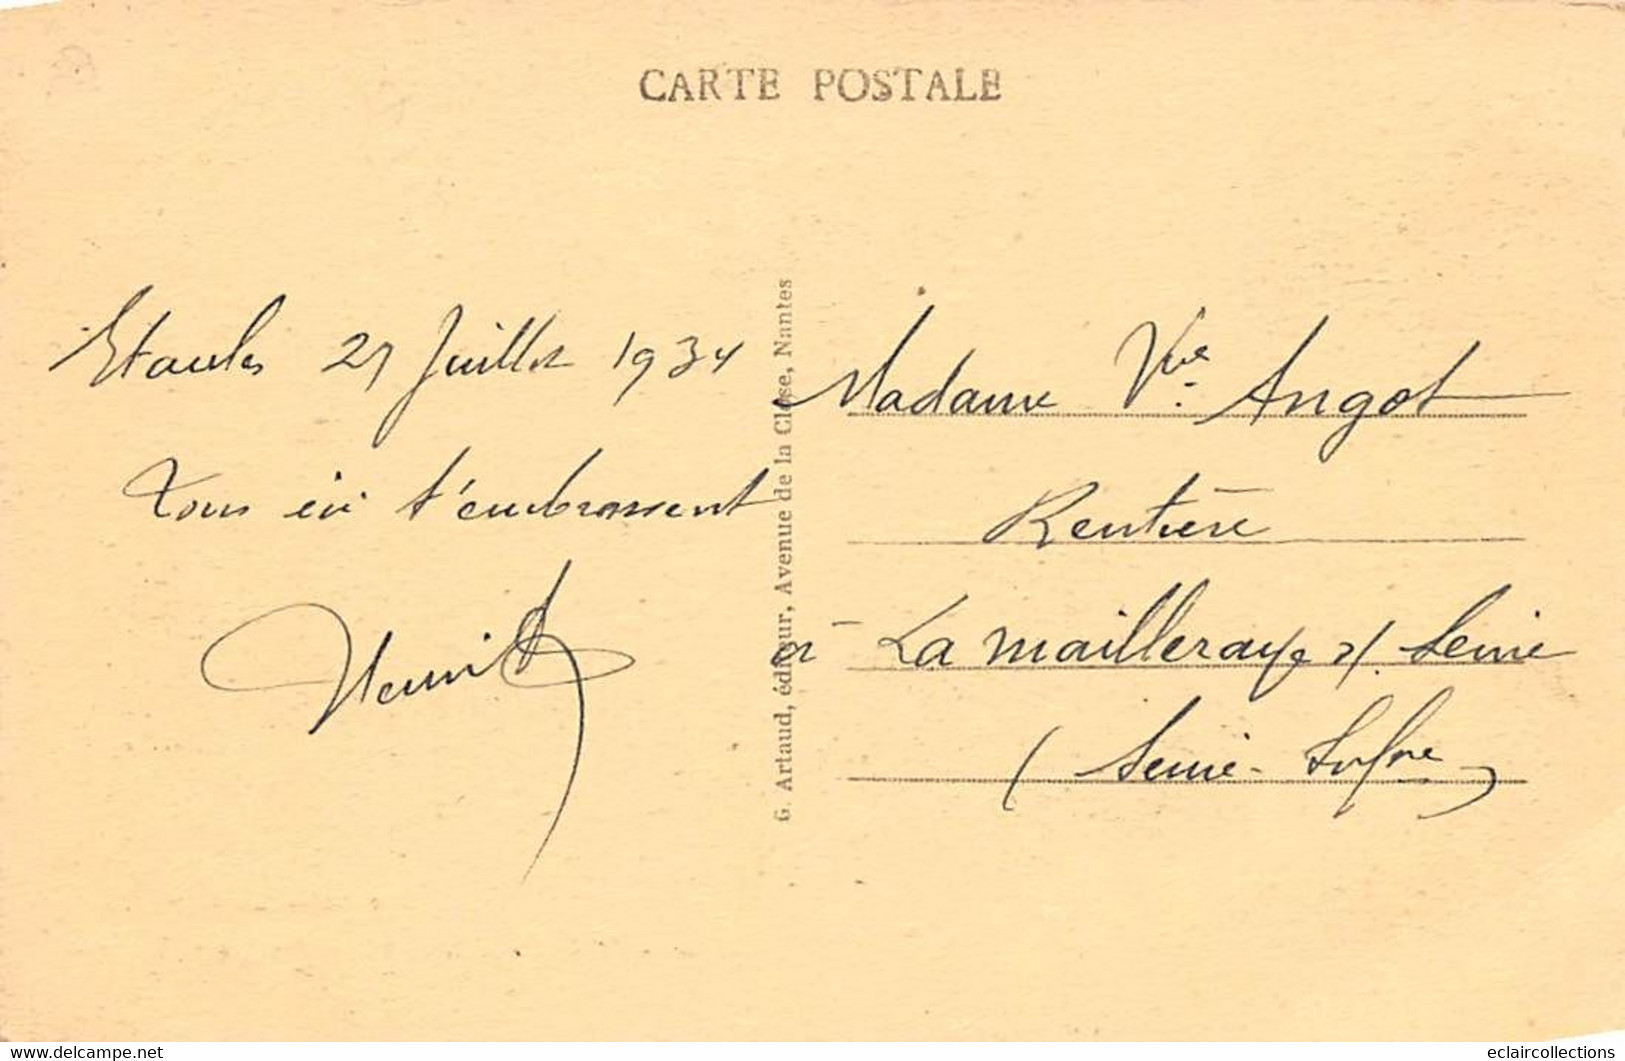 CARTE POSTALE
Etaules 27 Juillet 1934
Tous ici t'embrassent
G. Artaud, éditeur, Avenue de la Close, Nantes
Madame Vve Angot
Rentière
à La Mailleraye s/. Seine
(Seine-Infre)
www.delcampe.net
eclaircollections